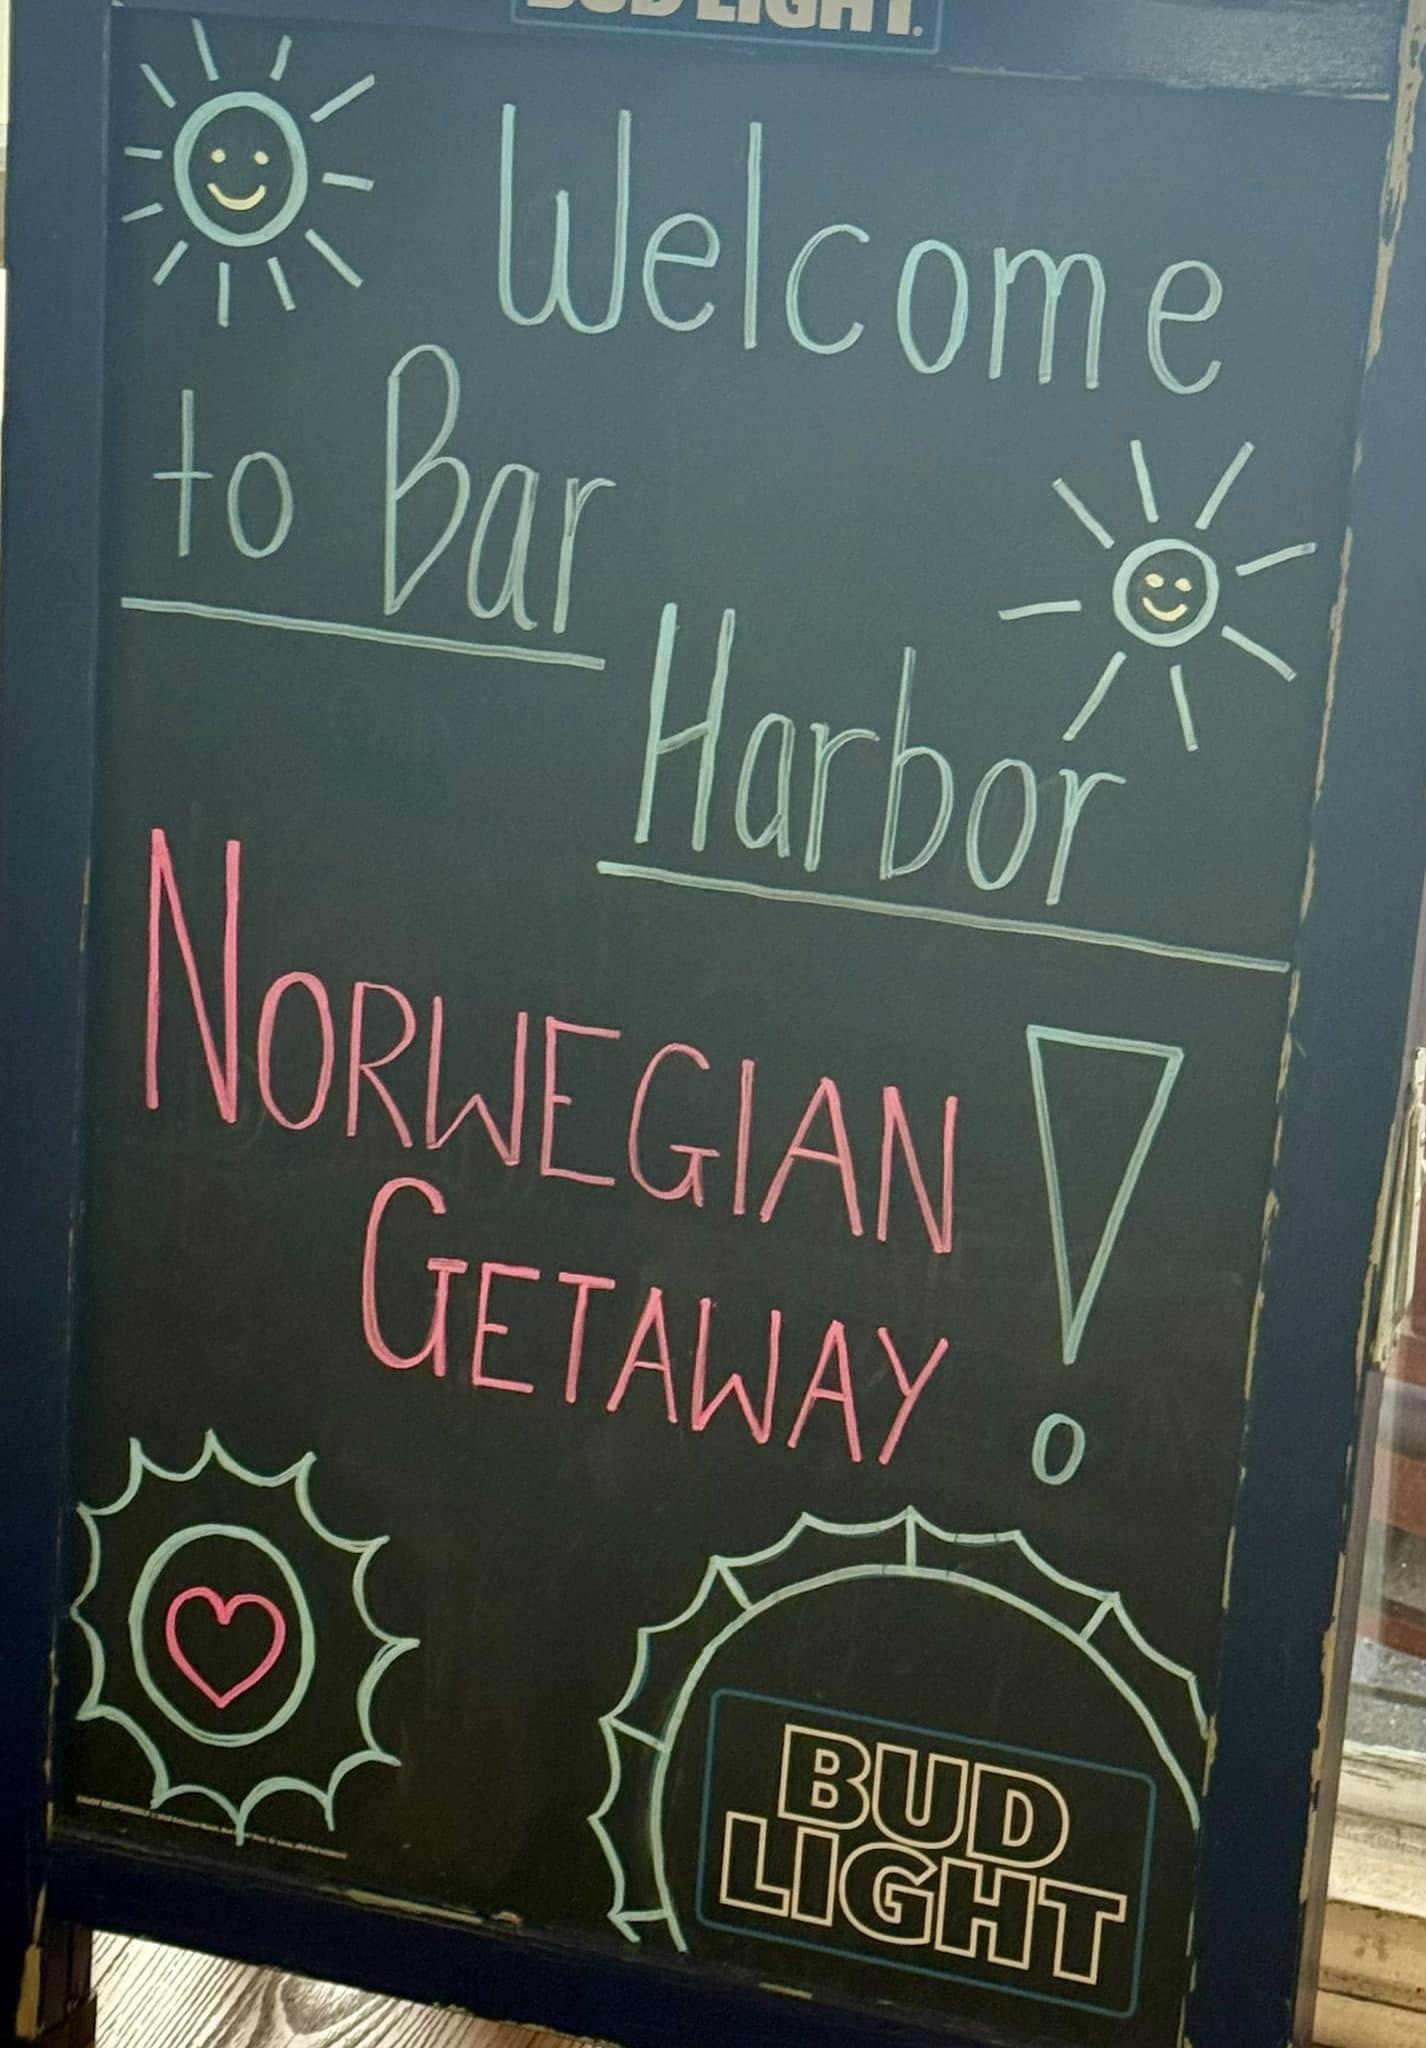 BUD LIGHT.
Welcome
to Bar
Harbor
NORWEGIAN
GETAWAY !
BUD
LIGHT